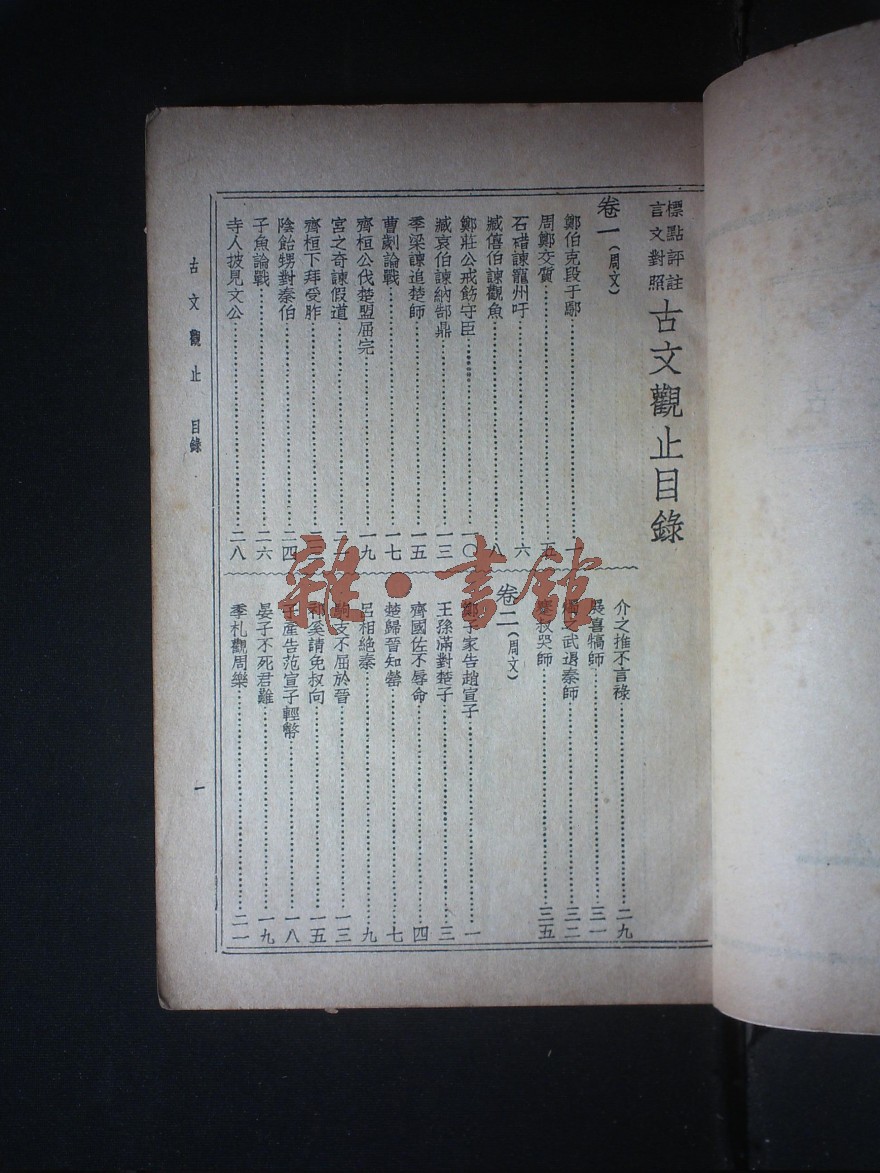 標點評註
言文對照
古文觀止目錄
卷一（周文）
鄭伯克段于鄢 一
周鄭交質 五
石碏諫寵州吁 六
臧僖伯諫觀魚 八
鄭莊公戒飭守臣 一〇
臧哀伯諫納郜鼎 一三
季梁諫追楚師 一五
曹劌論戰 一七
齊桓公伐楚盟屈完 一九
宮之奇諫假道
齊桓下拜受胙
陰飴甥對秦伯 二四
子魚論戰 二六
寺人披見文公 二八
介之推不言祿 二九
展喜犒師 三一
燭之武退秦師 三二
蹇叔哭師 三五
卷二（周文）
鄭子家告趙宣子 一
王孫滿對楚子 三
齊國佐不辱命 四
楚歸晉知罃 七
呂相絕秦 九
駒支不屈於晉 一三
祁奚請免叔向 一五
子產告范宣子輕幣 一八
晏子不死君難 一九
季札觀周樂 二一
古文觀止 目錄
一
雜·書館